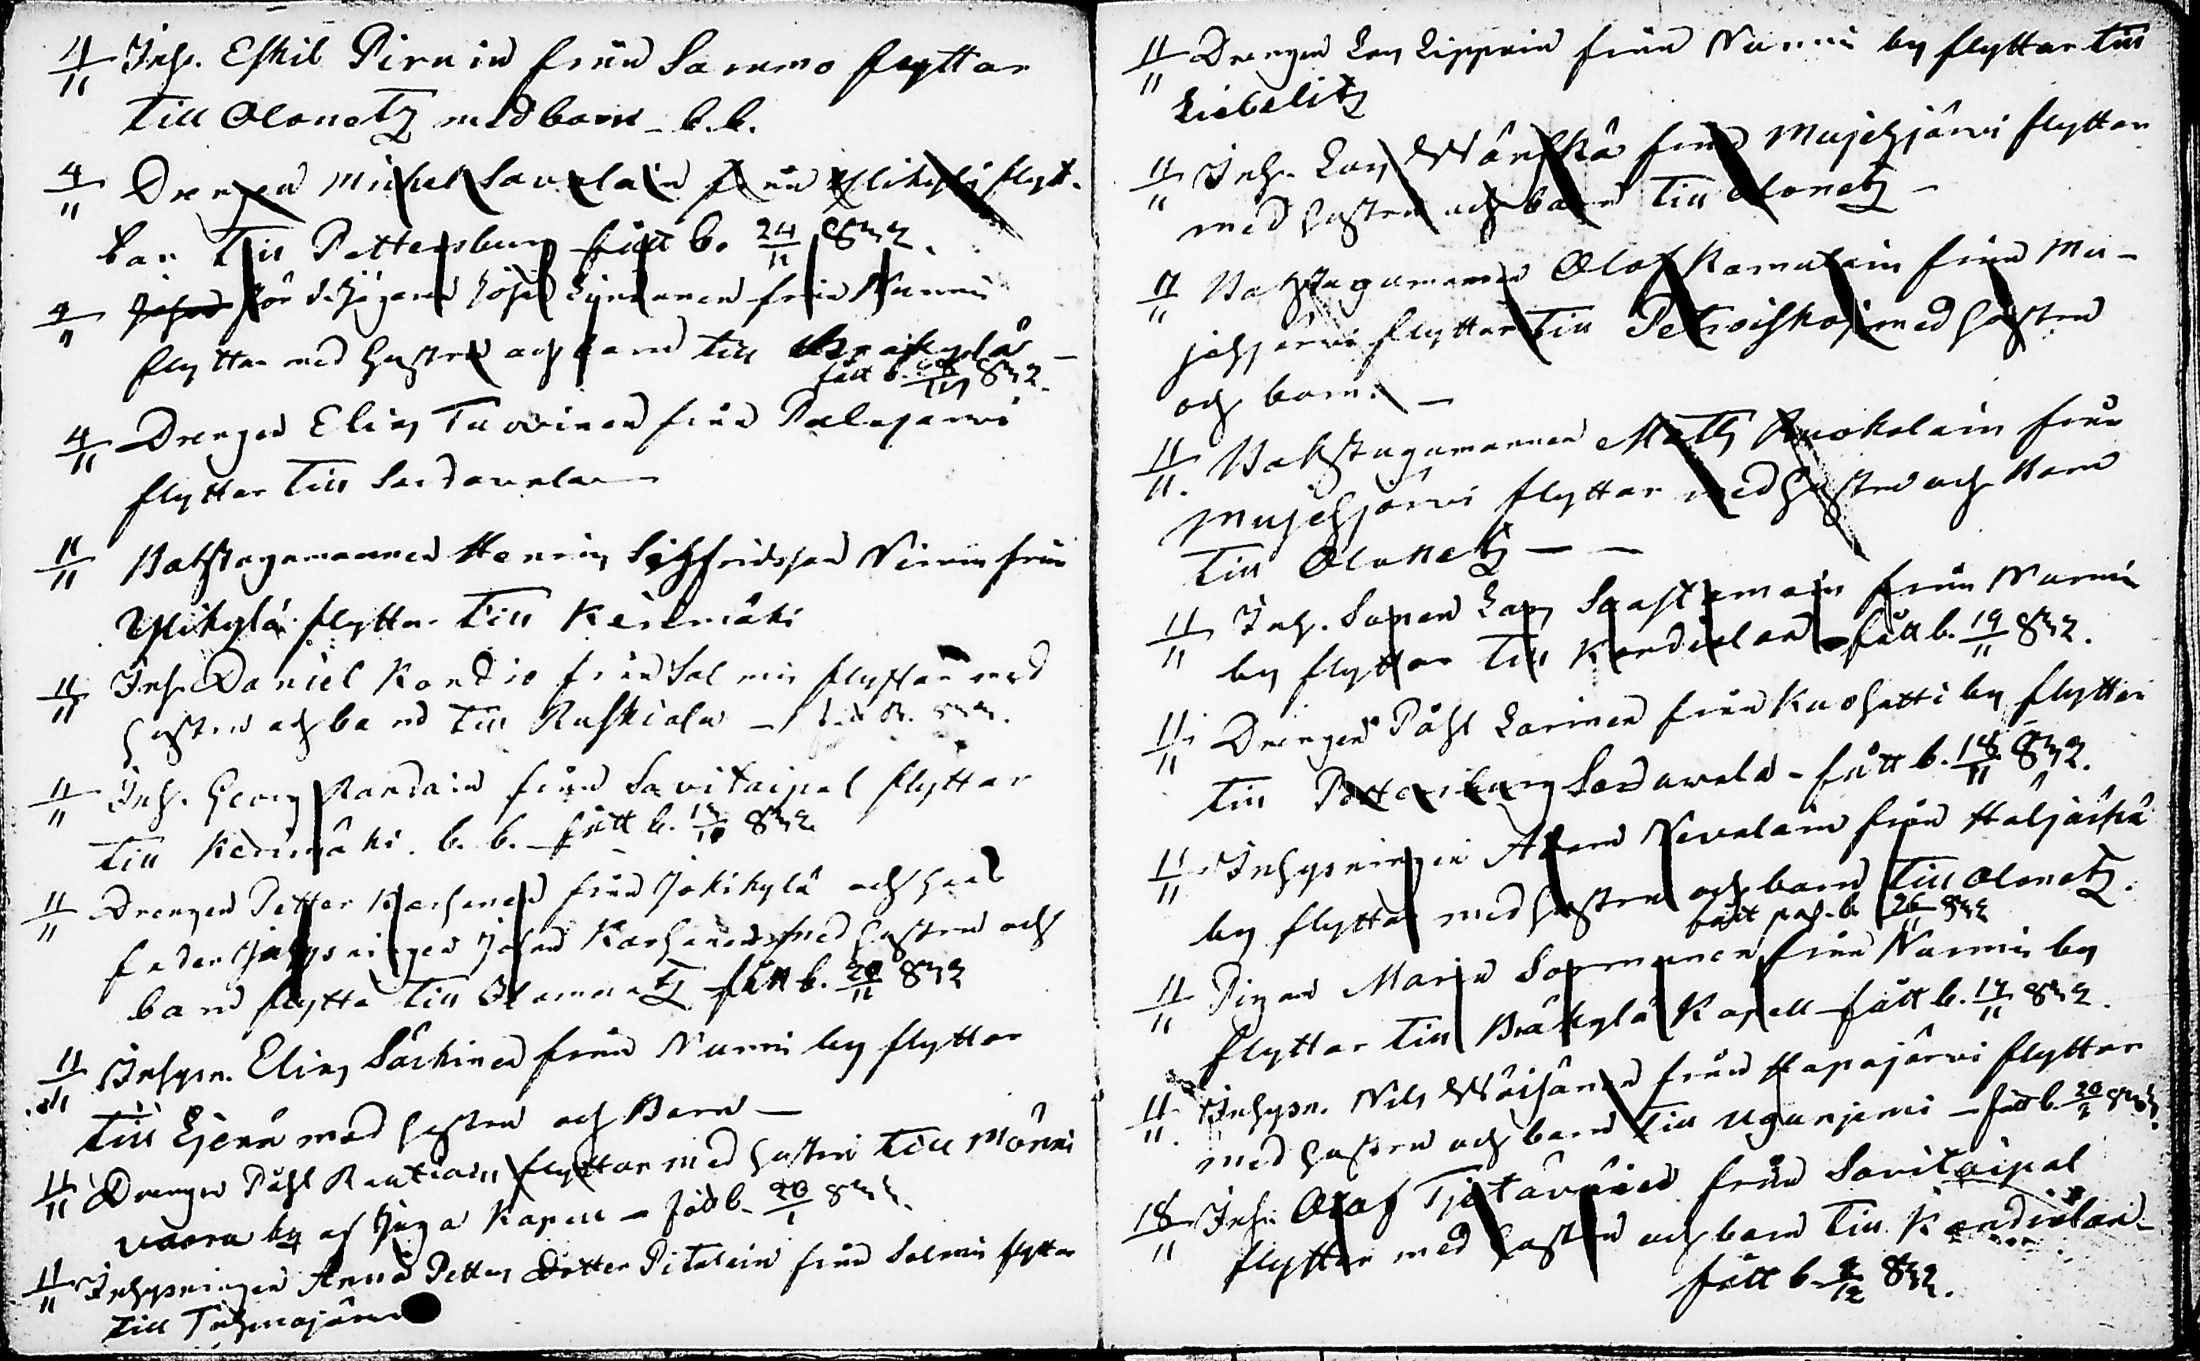 4/11 Inh. Eskil Pirnin från Sarmo flyttar
till Olonetz med barn - b.b.
4/11 Drengen Mickel Savolain från Ylikylä flyt-
tar till Pettersburg fått b. 24/11 832.
4/11 Johan Linnanen från Nurmis
flyttar med hustru och barn till Bräkylä -
fått b. 832.
4/11 Drengen Elias Turvinen från Palojärvi
flyttar till Sardavala
11/11 Bakstugumannen Henrig Sigfridsson Nirin från
Ylikylä flyttar till Kerimäki
11/11 Inh. Daniel Kondio från Salmi flyttar med
hustru och barn till Ruskiala -
11/11 Inh. Georg Randain från Savitaipal flyttar
till Kerimäki. b. b. - fått b. 832
11/11 Drengen Petter Karhunen från Jokikylä och hans
fader Inhysningen Johan Karhunen med hustru och
barn flytta till Olonnetz fått b. 20/11 832
11/11 Inhysn. Elias Särkinen från Nurmis by flyttar
till Egenå med hustru och Barn -
11/11 Drengen Påhl Rautiain flyttar med hustru till Mönni
vaara by af Juga Kapell - fått b. 20/1
11/11 Inhysningen Anna Petters Dotter Pitelein från Salmis flyttar
till Tohmajärvi
11/11 Drengen Lars Lippoin från Nurmis by flyttar till
Liebelitz
11/11 Inh. Lars Wänskä från Mujehjärvi flyttar
med hustru och barn till Olonetz -
11/11 Bakstugumannen Olof Ramulain från Mu-
jehjärvi flyttar till Petroiskoj med hustru
och barn. -
11/11. Bakstugumannen Matts Kuokolain från
Mujehjärvi flyttar med hustru och Barn
till Olonetz - -
11/11 Inh. Sonen Lars Saastamoin från Nurmis
by flyttar till Kondiolax - fått b. 19/11 832.
11/11 Drengen Påhl Larinen från Kuohatti by flyttar
till Pettersburg Sordawala - fått b. 18/11 832.
11/11 Inhysningen Adam Nevalain från Höljäkkä
by flyttar med hustru och barn till Olonetz.
fått pas. b. 26/11 832
11/11 Pigan Maria Sormunen från Nurmis by
flyttar till Bräkylä Kapell - fått b. 17/11 832.
11/11. Inhysn. Nils Wäisänen från Hapajärvi flyttar
med hustru och barn till Uguniemi - fått b. 20/11 832.
18/11 Inh. Olof Tjetäväinen från Savitaipal
flyttar med hustru och barn till Kondiolax -
fått b. 2/12 832.